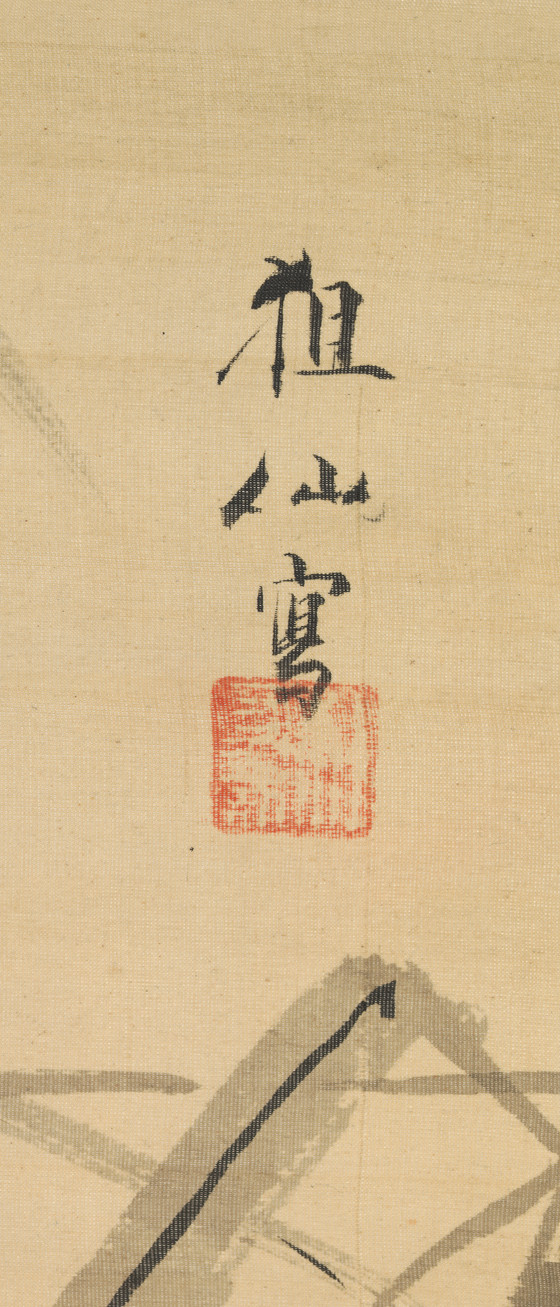 狙仙寫